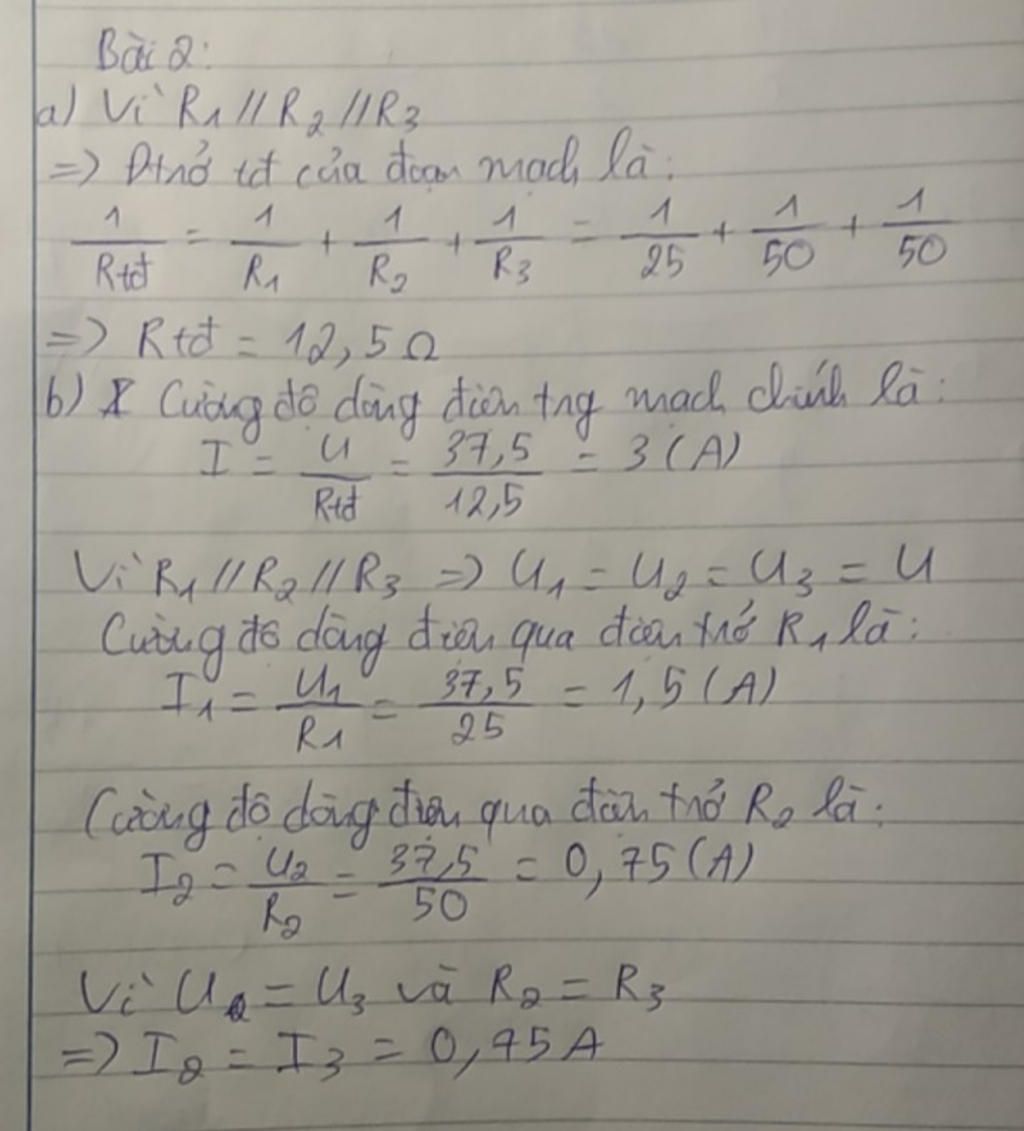 Bài 2:
a) Vì R1 // R2 // R3
=> Đtrở tđ của đoạn mạch là:
1/Rtđ = 1/R1 + 1/R2 + 1/R3 = 1/25 + 1/50 + 1/50
=> Rtđ = 12,5 Ω
b) Cường độ dòng điện tng mạch chính là:
I = U/Rtđ = 37,5/12,5 = 3 (A)
Vì R1 // R2 // R3 => U1 = U2 = U3 = U
Cường độ dòng điện qua điện trở R1 là:
I1 = U1/R1 = 37,5/25 = 1,5 (A)
Cường độ dòng điện qua điện trở R2 là:
I2 = U2/R2 = 37,5/50 = 0,75 (A)
Vì U2 = U3 và R2 = R3
=> I2 = I3 = 0,75 A